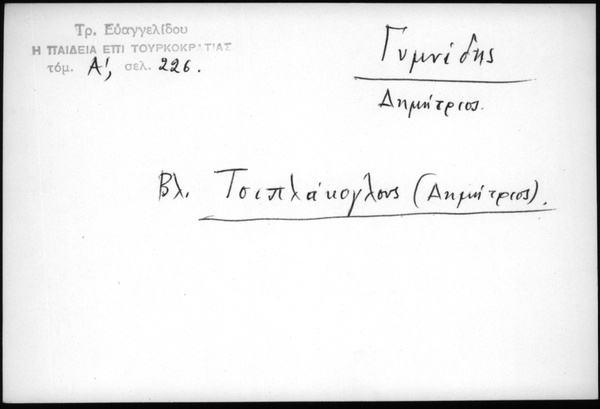 Τρ. Εὐαγγελίδου
Η ΠΑΙΔΕΙΑ ΕΠΙ ΤΟΥΡΚΟΚΡΑΤΙΑΣ
τόμ. Α', σελ. 226.
Γυμνίδης
Δημήτριος.
Βλ. Τσιπλάκογλους (Δημήτριος).